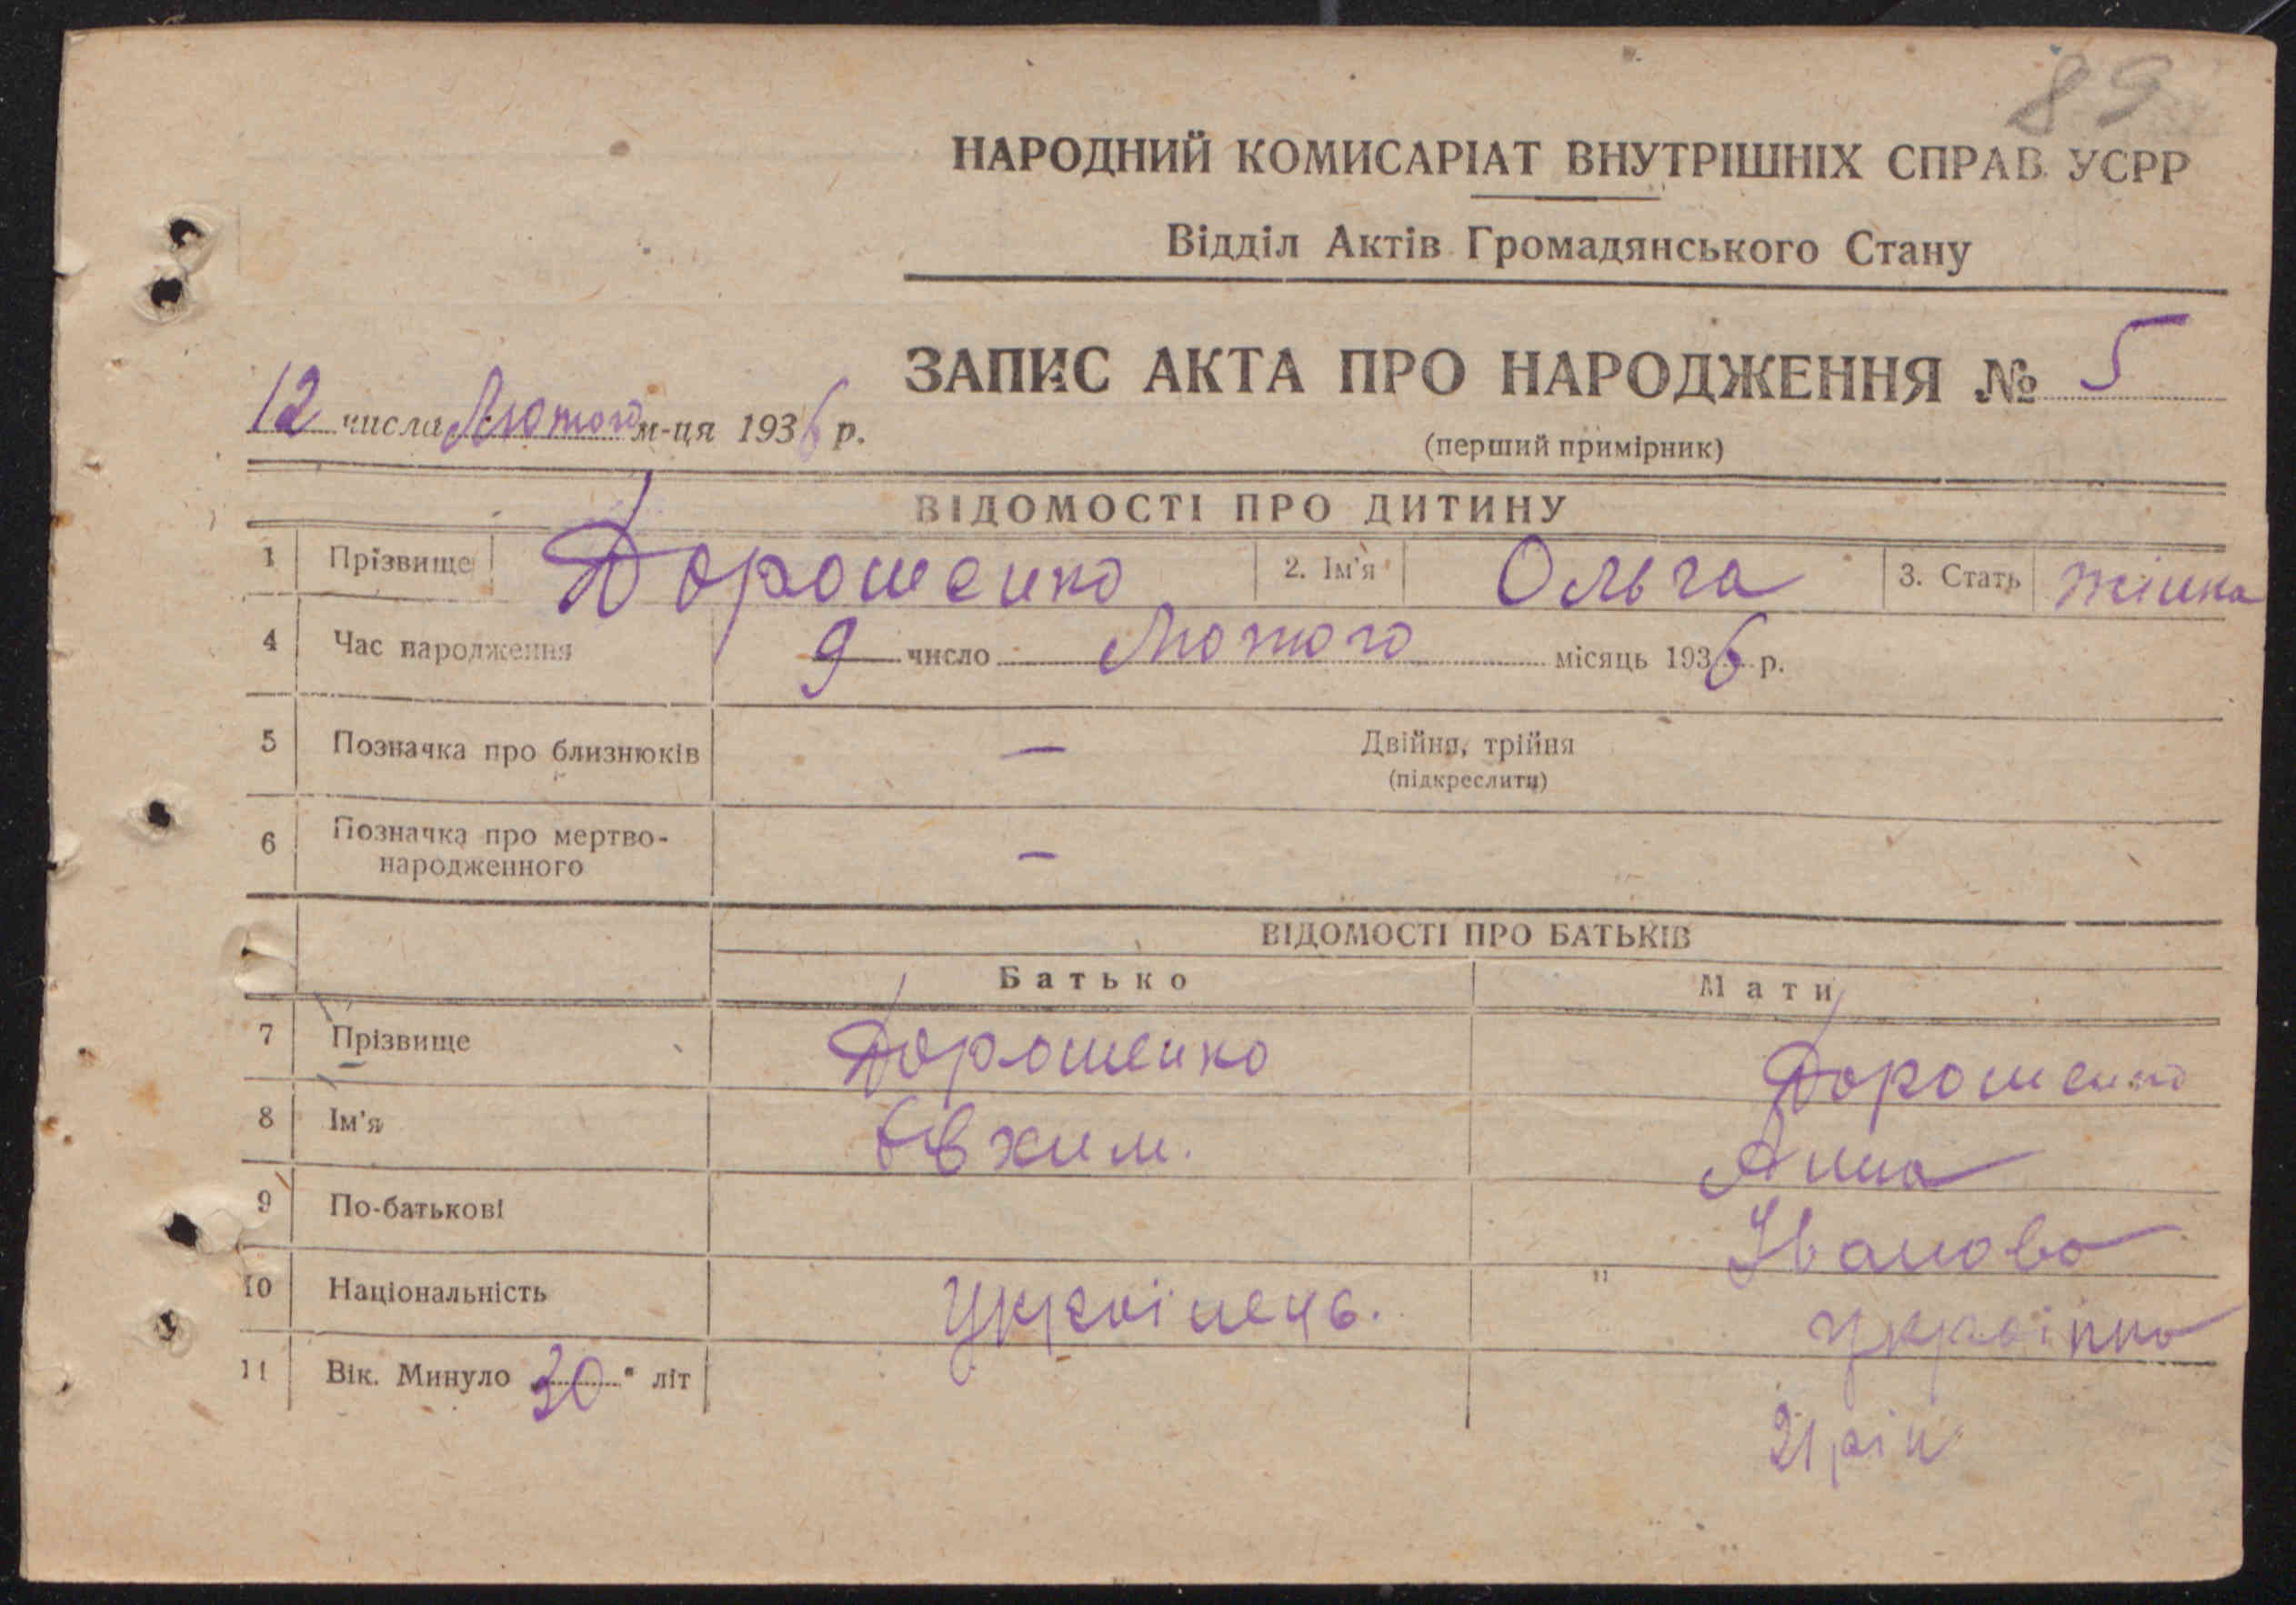 89
НАРОДНИЙ КОМИСАРІАТ ВНУТРІШНІХ СПРАВ УСРР
Відділ Актів Громадянського Стану
ЗАПИС АКТА ПРО НАРОДЖЕННЯ № 5
12 числа Лютого м-ця 1936 р.
(перший примірник)
ВІДОМОСТІ ПРО ДИТИНУ
1 Прізвище Дорошенко 2. Ім'я Ольга 3. Стать жінка
4 Час народження 9 число Лютого місяць 1936 р.
5 Позначка про близнюків — Двійня, трійня
(підкреслити)
6 Позначка про мертво-
народженного —
ВІДОМОСТІ ПРО БАТЬКІВ
Батько Мати
7 Прізвище Дорошенко Дорошенко
8 Ім'я Євхим. Анна
9 По-батькові Іванова
10 Національність Українець. " Українка
11 Вік. Минуло 30 літ
21 рік